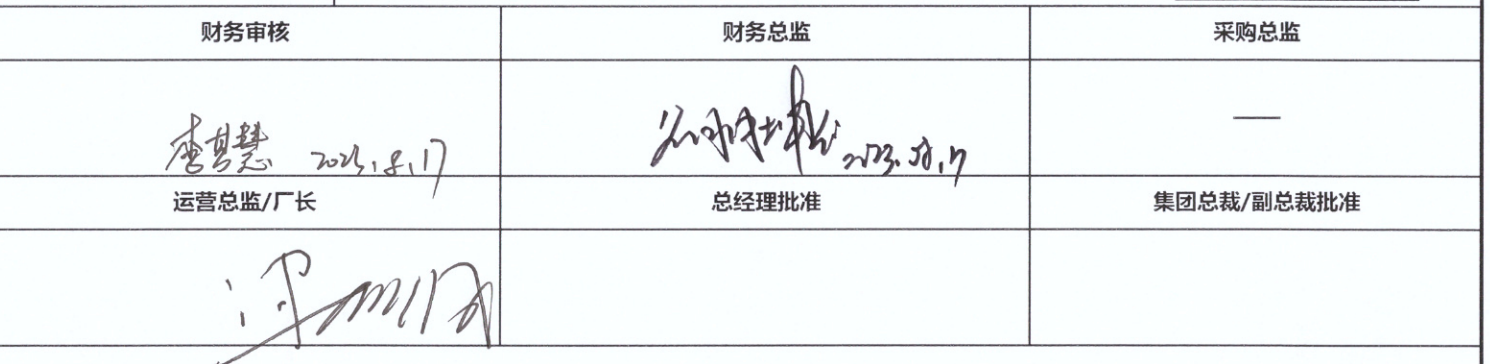 财务审核 财务总监 采购总监
李其慧 2023.8.17 2023.08.17 —
运营总监/厂长 总经理批准 集团总裁/副总裁批准